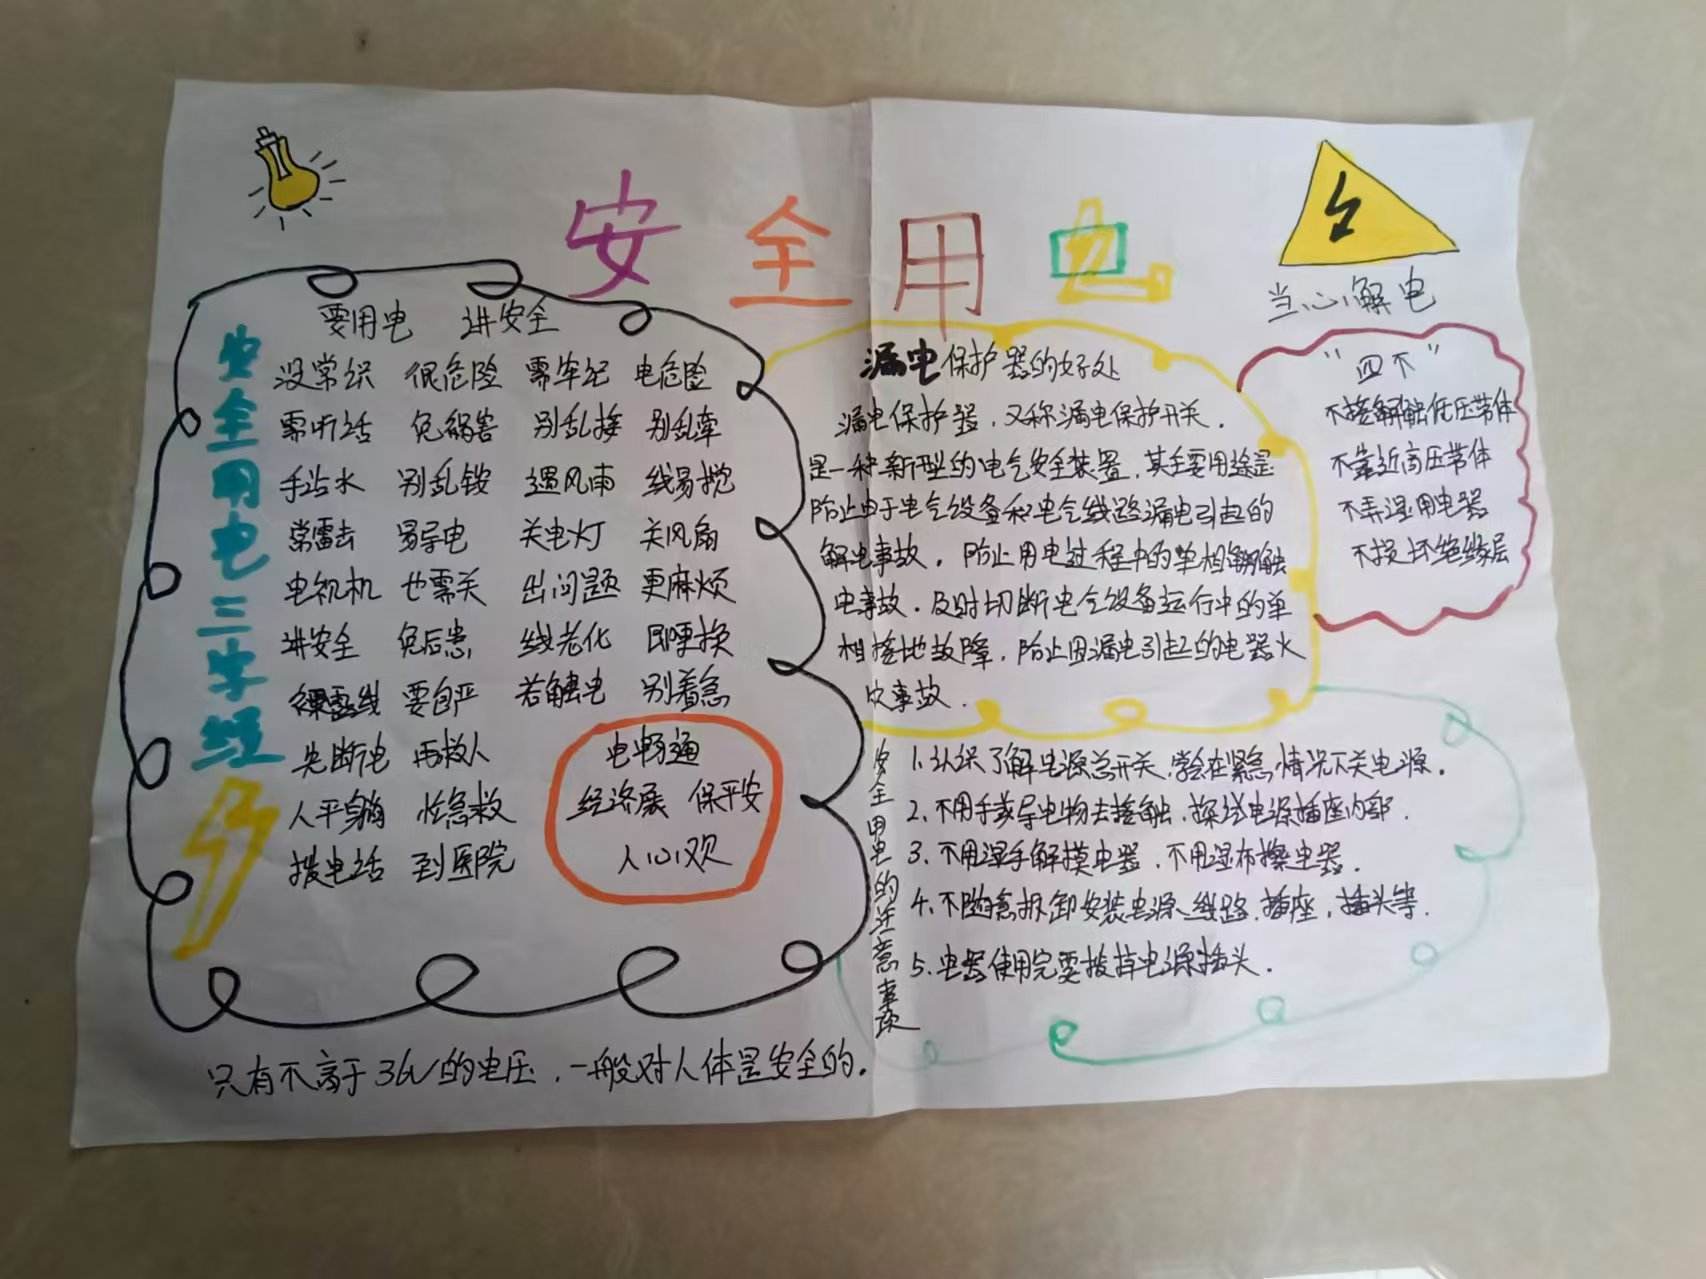 安全用电
当心解电
安全用电三字经
要用电 讲安全
没常识 很危险 需牢记 电危险
需听话 免祸害 别乱接 别乱牵
手沾水 别乱按 遇风雨 线易搅
常雷击 易导电 关电灯 关风扇
电视机 也需关 出问题 更麻烦
讲安全 免后患 线老化 即更换
裸露线 要包严 若触电 别着急
先断电 再救人 电畅通
人平躺 忙急救 经济展 保平安
拨电话 到医院 人心欢
只有不高于36V的电压，一般对人体是安全的。
漏电保护器的好处
漏电保护器，又称漏电保护开关，
是一种新型的电气安全装置，其主要用途是
防止由于电气设备和电气线路漏电引起的
解电事故，防止用电过程中的单相解触
电事故，及时切断电气设备运行中的单
相接地故障，防止因漏电引起的电器火
灾事故．
“四不”
不接解触低压带体
不靠近高压带体
不弄湿用电器
不损坏绝缘层
安全用电的注意事项
1.认识了解电源总开关，学会在紧急情况下关电源．
2.不用手或导电物去接触，探试电源插座内部．
3.不用湿手解摸电器，不用湿布擦电器．
4.不随意拆卸安装电源、线路、插座，插头等．
5.电器使用完要拔掉电源插头．